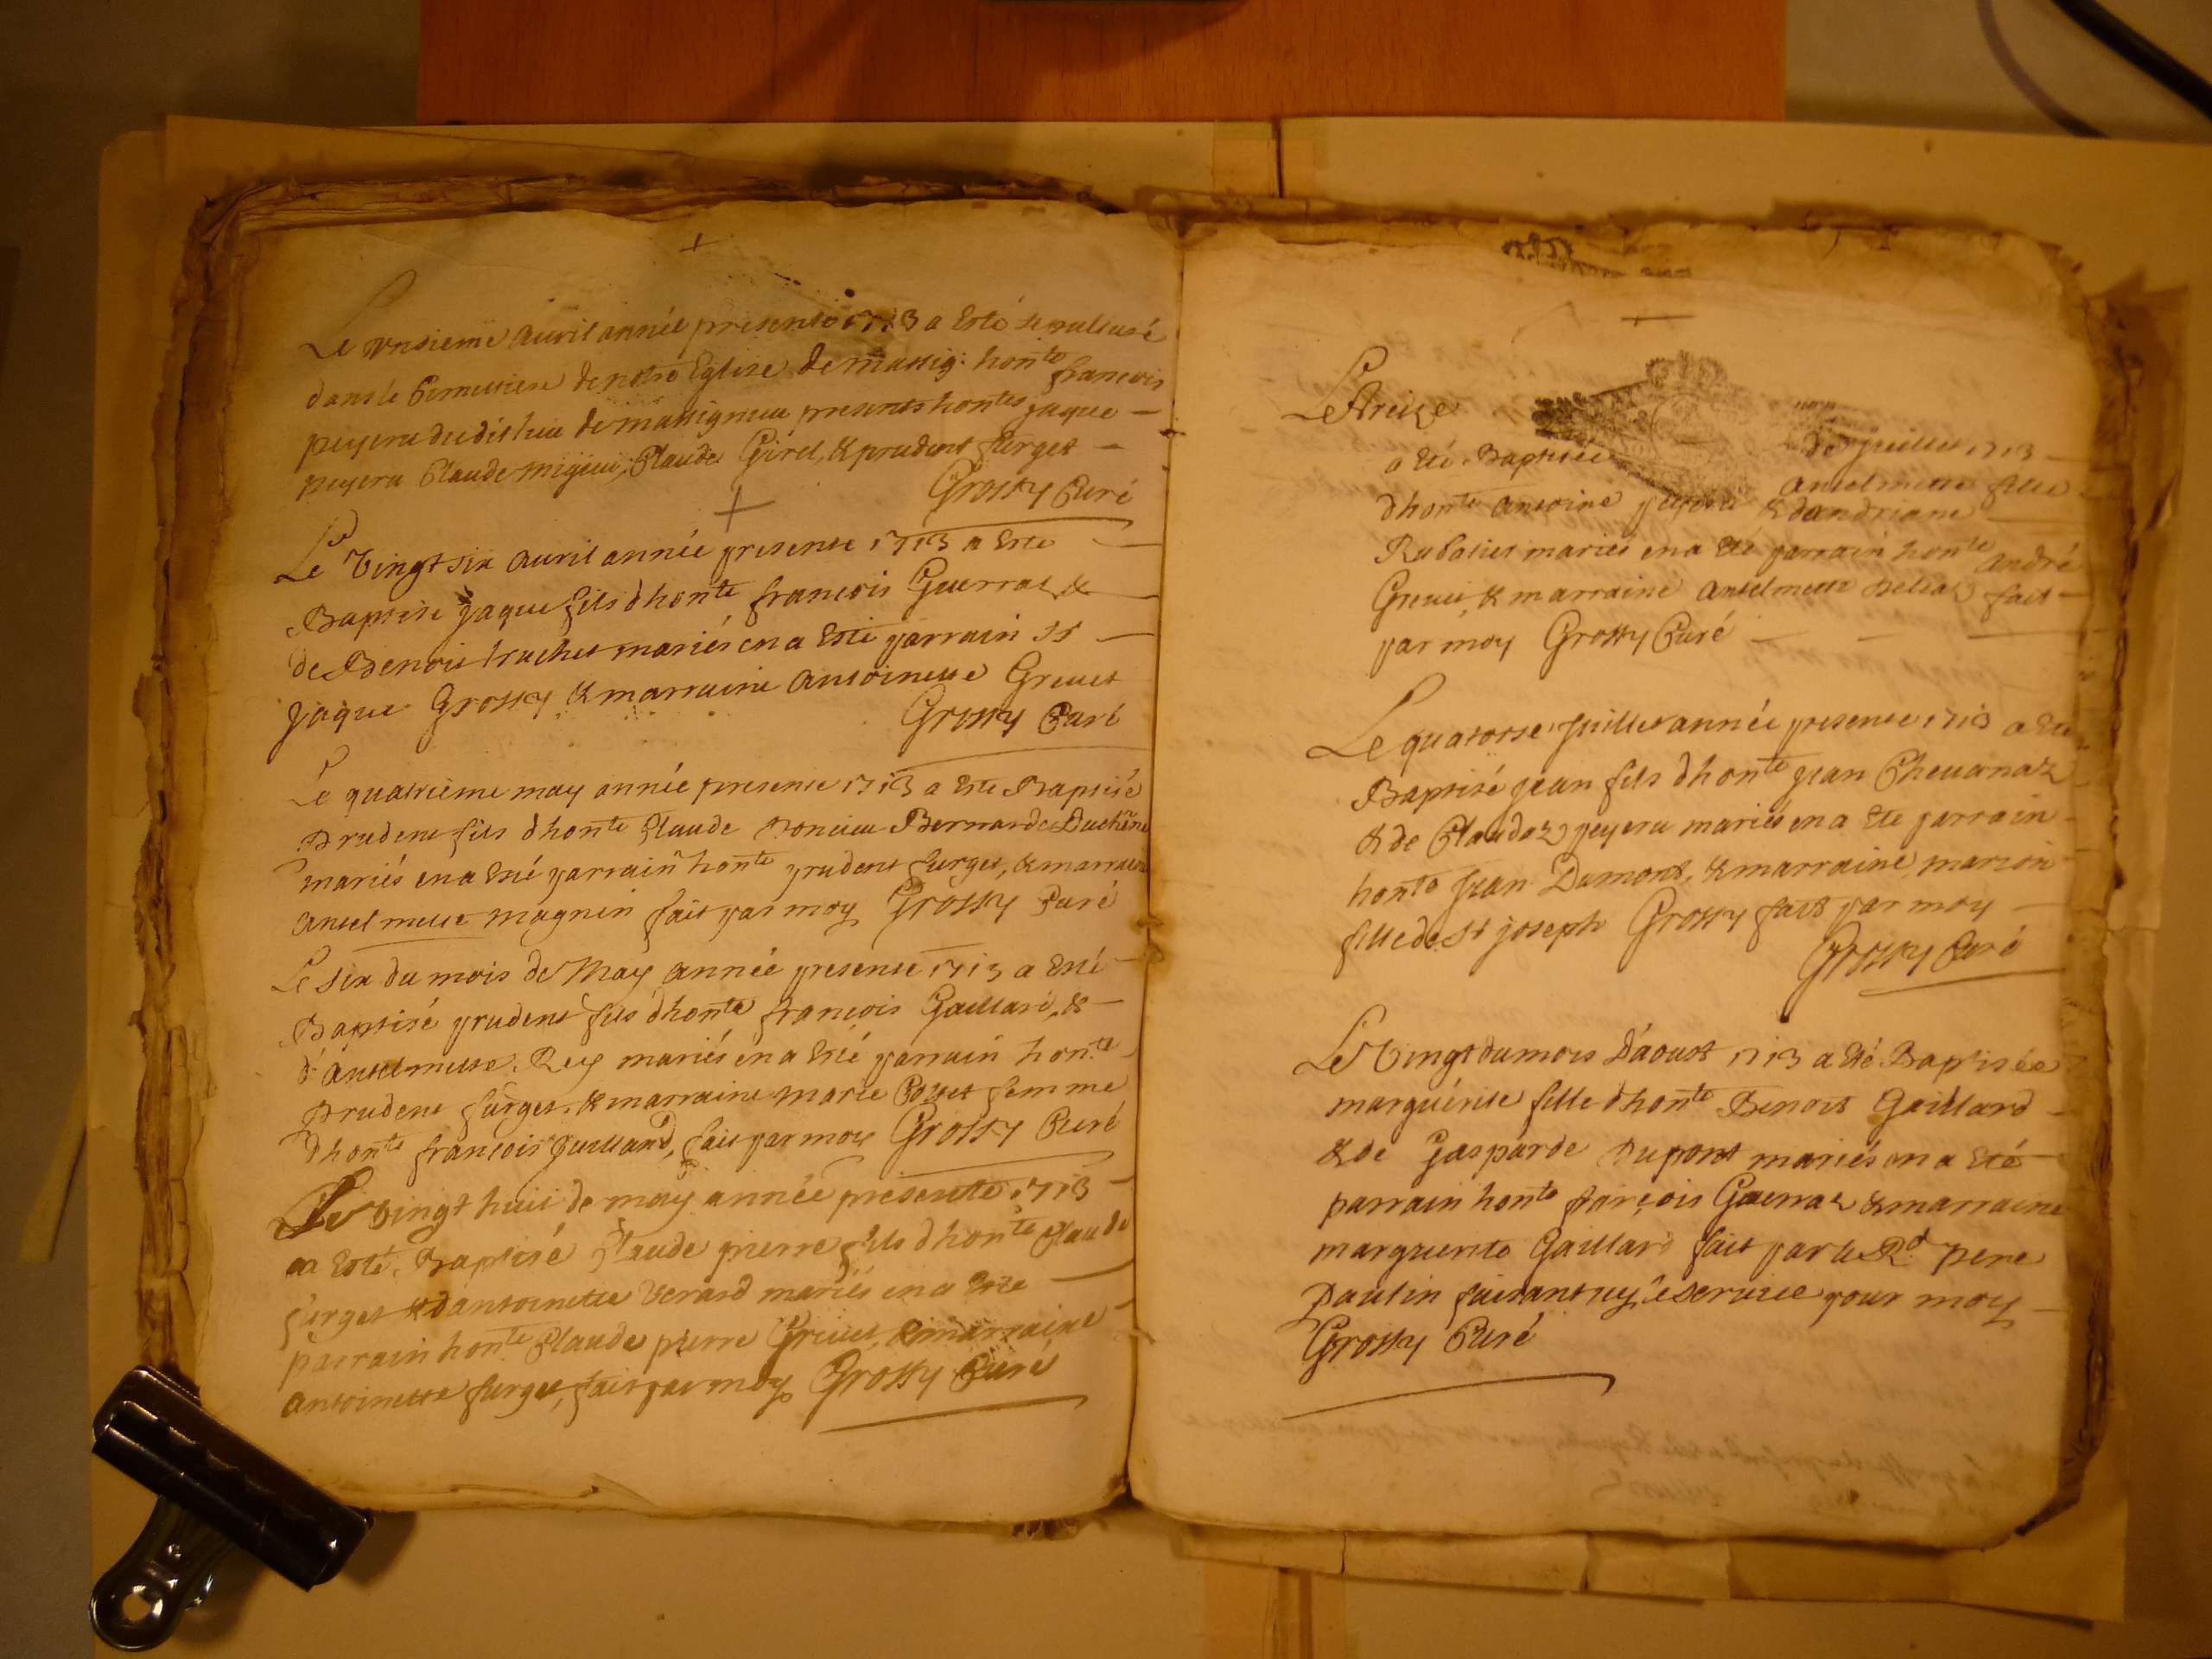 Le onsieme auril année presente 1713 a Esté sepulturé
dans le Cemetiere de nostre Eglise de massig: honte françois
peyera dudit lieu de massigneu presents hontes jaque
peyera Claude migieu, Claude Girel, & prudent furget
Grossy Curé
Le Vingt six auril année presente 1713 a Este
Baptisé jaque fils dhonte françois Guerraz &
de Benoite truchet mariés en a Esté parrain Sr
jaque Grossy & marraine antoinette Greuet
Grossy Curé
Le quatrieme may année presente 1713 a Este Baptisé
prudent fils dhonte Claude Bernarde Duchêne
mariés en a Esté parrain honte prudent furget, & marraine
antelmette magnin fait par moy Grossy Curé
Le six du mois de May année presente 1713 a Esté
Baptisé prudent fils dhonte françois Gaillard, &
d'antelmette Rey mariés en a Esté parrain honte
prudent furget, & marraine marie femme
dhonte françois fait par moy Grossy Curé
Le Vingt huit de may année presente 1713
a Esté Baptisé Claude pierre fils dhonte Claude
furget & dantoinette Verard mariés en a Esté
parrain honte Claude pierre Greuet, & marraine
antoinette furget, fait par moy Grossy Curé
Le treize
de juillet 1713
a Eté Baptisée antelmette fille
dhonte antoine & dandriane
mariés en a Eté parrain honte andré
Greuet, & marraine antelmette fait
par moy Grossy Curé
Le quatorse juillet année presente 1713 a Eté
Baptisé jean fils dhonte jean Cheuanaz
& de Claudaz peyera mariés en a Eté parrain
honte jean Dumont, & marraine marion
fille de Sr joseph Grossy fait par moy
Grossy Curé
Le Vingt du mois D'aoust 1713 a Eté Baptisée
marguérite fille dhonte Benoit Gaillard
& de Gasparde Dupont mariés en a Eté
parrain honte françois Guerraz & marraine
marguerite Gaillard fait par le Rd pere
Paulin faisant icy le seruice pour moy
Grossy Curé